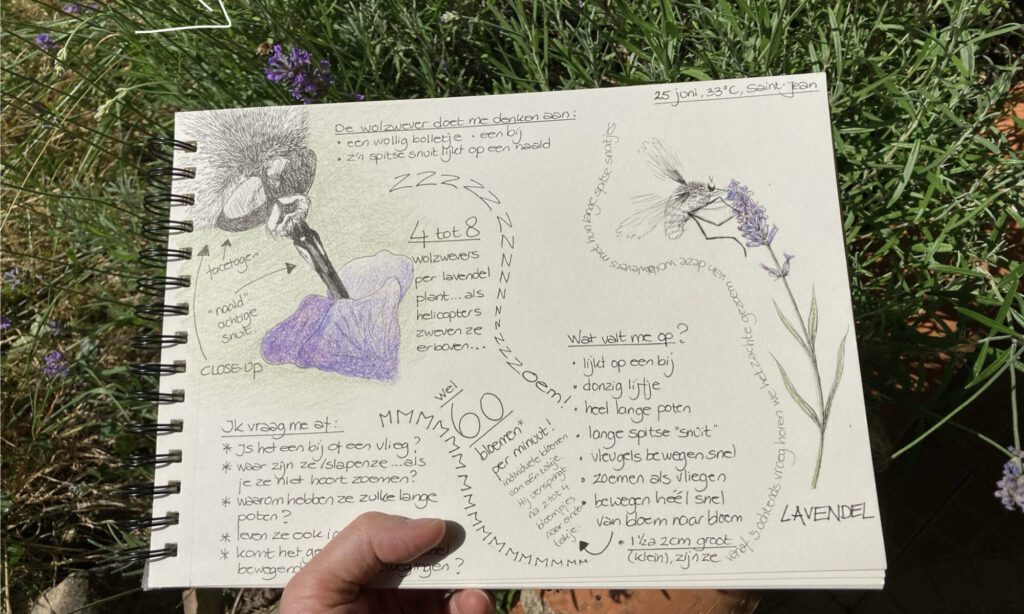 25 juni, 33°C, Saint-Jean
De wolzwever doet me denken aan:
• een wollig bolletje • een bij
• z'n spitse snuit lijkt op een naald
ZZZZZZZZZZZZZZZoem!
4 tot 8
wolzwevers
per lavendel
plant... als
helicopters
zweven ze
erboven...
facetogen
"naald"
achtige
snuit.
CLOSE-UP
Ik vraag me af:
* Is het een bij of een vlieg?
* waar zijn ze/slapen ze ... als
je ze niet hoort zoemen?
* waarom hebben ze zulke lange
poten?
* leven ze ook in
* komt het
bewegend ?
MMMMMMMMMMMMMMMMMMMM
wel
60
bloemen*
per minuut!
individuele bloemen
aan één takje.
Hij verspringt
na 2 tot 4
bloempjes
naar ander
takje.
Wat valt me op?
• lijkt op een bij
• donzig lijfje
• heel lange poten
• lange spitse "snuit"
• vleugels bewegen snel
• zoemen als vliegen
• bewegen héél snel
van bloem naar bloem
• 1½ a 2cm groot
(klein), zijn ze
Vanaf 's ochtends vroeg horen we het zachte gezoem van deze wolzwevers met hun lange spitse snuitjes
LAVENDEL